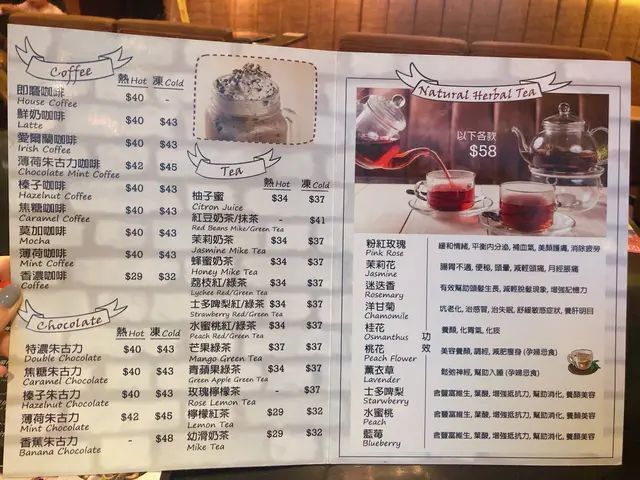 Coffee
熱 Hot 凍 Cold
即磨咖啡 $40 -
House Coffee
鮮奶咖啡 $40 $43
Latte
愛爾蘭咖啡 $40 $43
Irish Coffee
薄荷朱古力咖啡 $42 $45
Chocolate Mint Coffee
榛子咖啡 $40 $43
Hazelnut Coffee
焦糖咖啡 $40 $43
Caramel Coffee
莫加咖啡 $40 $43
Mocha
薄荷咖啡 $40 $43
Mint Coffee
香濃咖啡 $29 $32
Coffee
Chocolate
熱 Hot 凍 Cold
特濃朱古力 $40 $43
Double Chocolate
焦糖朱古力 $40 $43
Caramel Chocolate
榛子朱古力 $40 $43
Hazelnut Chocolate
薄荷朱古力 $42 $45
Mint Chocolate
香蕉朱古力 - $48
Banana Chocolate
Tea
熱 Hot 凍 Cold
柚子蜜 $34 $37
Citron Juice
紅豆奶茶/抹茶 - $41
Red Beans Mike/Green Tea
茉莉奶茶 $34 $37
Jasmine Mike Tea
蜂蜜奶茶 $34 $37
Honey Mike Tea
荔枝紅/綠茶 $34 $37
Lychee Red/Green Tea
士多啤梨紅/綠茶 $34 $37
Strawberry Red/Green Tea
水蜜桃紅/綠茶 $34 $37
Peach Red/Green Tea
芒果綠茶 $34 $37
Mango Green Tea
青蘋果綠茶 $34 $37
Green Apple Green Tea
玫瑰檸檬茶 - $37
Rose Lemon Tea
檸檬紅茶 $29 $32
Lemon Tea
幼滑奶茶 $29 $32
Mike Tea
Natural Herbal Tea
以下各款
$58
功效
粉紅玫瑰 緩和情緒, 平衡內分泌, 補血氣, 美顏護膚, 消除疲勞
Pink Rose
茉莉花 腸胃不適, 便秘, 頭暈, 減輕頭痛, 月經脹痛
Jasmine
迷迭香 有效幫助頭髮生長, 減輕脫髮現象, 增強記憶力
Rosemary
洋甘菊 抗老化, 治感冒, 治失眠, 舒緩敏感症狀, 養肝明目
Chamomile
桂花 養顏, 化胃氣, 化痰
Osmanthus
桃花 美容養顏, 調經, 減肥瘦身 (孕婦忌食)
Peach Flower
薰衣草 鬆弛神經, 幫助入睡 (孕婦忌食)
Lavender
士多啤梨 含豐富維生, 葉酸, 增強抵抗力, 幫助消化, 養顏美容
Starwberry
水蜜桃 含豐富維生, 葉酸, 增強抵抗力, 幫助消化, 養顏美容
Peach
藍莓 含豐富維生, 葉酸, 增強抵抗力, 幫助消化, 養顏美容
Blueberry